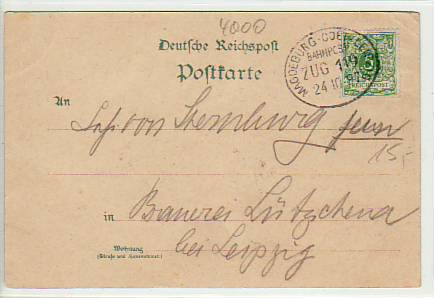 4000
Deutsche Reichspost
Postkarte
MAGDEBURG-
BAHNPOST
ZUG 119
24 10
5
REICHSPOST
An
von Sternburg
15,-
in Brauerei Lützschena
bei Leipzig
Wohnung
(Straße und Hausnummer)